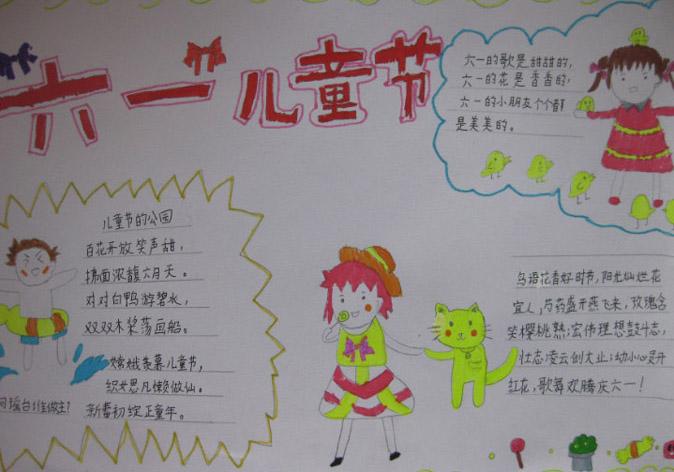 六一儿童节
六一的歌是甜甜的,
六一的花是香香的,
六一的小朋友个个都
是美美的。
儿童节的公园
百花开放笑声甜,
拂面浓馥六月天。
对对白鸭游碧水,
双双木桨荡画船。
嫦娥羡慕儿童节,
织女思凡懒做仙。
问瑶台谁做主?
新蕾初绽正童年。
鸟语花香好时节,阳光灿烂花
宜人,芍药盛开燕飞来,玫瑰含
笑樱桃熟;宏伟理想鼓斗志,
壮志凌云创大业;幼小心灵开
红花,歌舞欢腾庆六一!